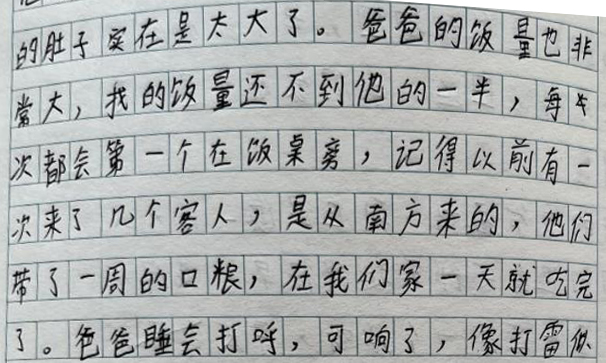 的肚子实在是太大了。爸爸的饭量也非
常大，找的饭量还不到他的一半，每
次都会第一个在饭桌旁，记得以前有一
次来了几个客人，是从南方来的，他们
带了一周的口粮，在我们家一天就吃完
了。爸爸睡会打呼，可响了，像打雷似